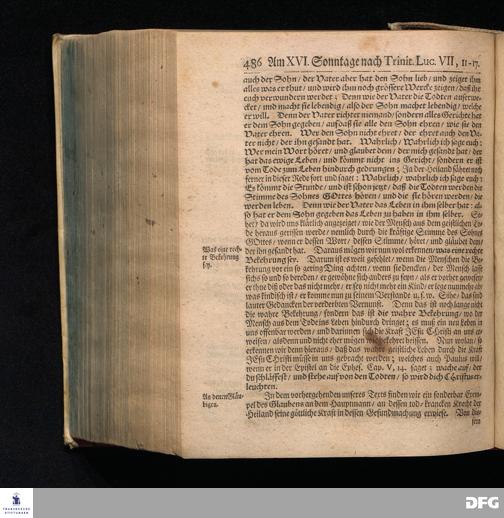 486 Am XVI. Sonntage nach Trinit. Luc. VII, 11-17.
auch der Sohn / der Vater aber hat den Sohn lieb / und zeiget ihm
alles was er thut / und wird ihm noch grössere Wercke zeigen / daß ihr
euch verwundern werdet; Denn wie der Vater die Todten auferwe-
cket / und macht sie lebendig / also der Sohn machet lebendig / welche
er will. Denn der Vater richtet niemand / sondern alles Gerichte hat
er dem Sohn gegeben / aufdaß sie alle den Sohn ehren / wie sie den
Vater ehren. Wer den Sohn nicht ehret / der ehret auch den Va-
ter nicht / der ihn gesandt hat. Wahrlich / Wahrlich ich sage euch:
Wer mein Wort höret / und glaubet dem / der mich gesandt hat / der
hat das ewige Leben / und kömmt nicht ins Gericht / sondern er ist
vom Tode zum Leben hindurch gedrungen; Ja der Heiland fähret noch
ferner in dieser Rede fort und saget: Wahrlich / wahrlich ich sage euch:
Es kömmt die Stunde / und ist schon jetzt / daß die Todten werden die
Stimme des Sohnes GOttes hören / und die sie hören werden / die
werden leben. Denn wie der Vater das Leben in ihm selber hat: al-
so hat er dem Sohn gegeben das Leben zu haben in ihm selber. Se-
het / da wird uns klärlich angezeiget / wie der Mensch aus dem geistlichen To-
de heraus gerissen werde / nemlich durch die kräftige Stimme des Sohnes
GOttes / wenn er dessen Wort / dessen Stimme / höret / und gläubet dem /
der ihn gesandt hat. Daraus mögen wir nun wol erkennen / was eine rechte
Bekehrung sey. Darum ist es weit gefehlet / wenn die Menschen die Be-
kehrung vor ein so gering Ding achten / wenn sie dencken / der Mensch lasse
sichs so und so bereden / er gewöhne sich anders zu seyn / als er vorher gewesen /
er thue diß oder das nicht mehr / er sey nicht mehr ein Kind / er lege nunmehr ab
was kindisch ist / er komme nun zu seinem Verstande u. s. w. Sihe / das sind
lauter Gedancken der verderbten Vernunft. Denn das ist noch lange nicht
die wahre Bekehrung / sondern das ist die wahre Bekehrung / wo der
Mensch aus dem Tode ins Leben hindurch dringet; es muß ein neu Leben in
uns offenbar werden / und darinnen sich die Kraft JEsu Christi an uns er-
weisen / als denn und nicht eher mögen wir bekehret heissen. Nun wolan / so
erkennen wir denn hieraus / daß das wahre geistliche Leben durch die Kraft
JEsu Christi müsse in uns gebracht werden; welches auch Paulus will /
wenn er in der Epistel an die Ephes. Cap. V, 14. saget; wache auf / der
du schläffest / und stehe auf von den Todten / so wird dich Christus er-
leuchten.
In dem vorhergehenden unseres Texts finden wir ein sonderbar Exem-
pel des Glaubens an dem Hauptmann / an dessen tod-krancken Knecht der
Heiland seine göttliche Kraft in dessen Gesundmachung erwiese. Von die-
sem
Was eine rech-
te Bekehrung
sey.
An denen Gläu-
bigen.
FRANCKESCHE
STIFTUNGEN
DFG